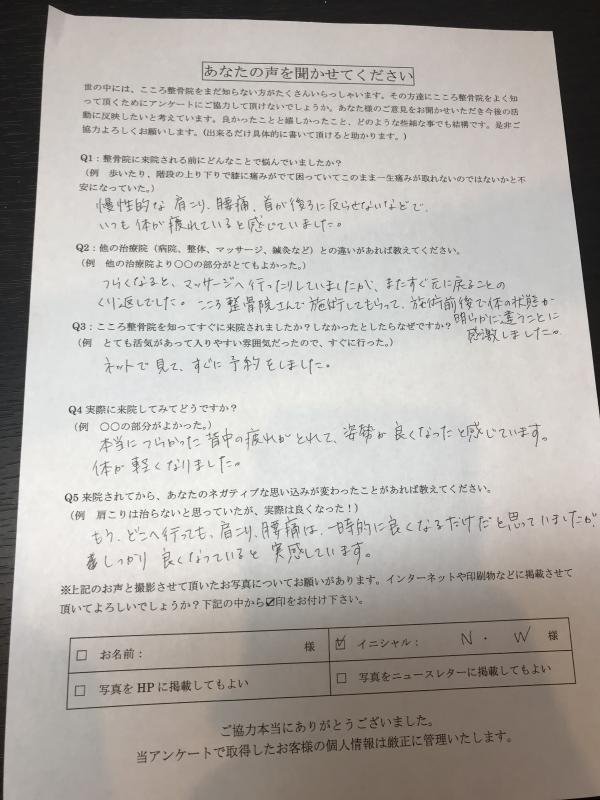 あなたの声を聞かせてください
世の中には、こころ整骨院をまだ知らない方がたくさんいらっしゃいます。その方達にこころ整骨院をよく知
って頂くためにアンケートにご協力して頂けないでしょうか。あなた様のご意見をお聞かせいただき今後の活
動に反映したいと考えています。良かったことと嬉しかったこと、どのような些細な事でも結構です。是非ご
協力よろしくお願いします。(出来るだけ具体的に書いて頂けると助かります。)
Q1：整骨院に来院される前にどんなことで悩んでいましたか？
(例 歩いたり、階段の上り下りで膝に痛みがでて困っていてこのまま一生痛みが取れないのではないかと不
安になっていた。)
慢性的な肩こり、腰痛、首が後ろに反らせないなどで、
いつも体が疲れていると感じていました。
Q2：他の治療院（病院、整体、マッサージ、鍼灸など）との違いがあれば教えてください。
(例 他の治療院より〇〇の部分がとてもよかった。)
つらくなると、マッサージへ行ったりしていましたが、またすぐ元に戻ることの
くり返しでした。こころ整骨院さんで施術してもらって、施術前後で体の状態が
明らかに違うことに
感激しました。
Q3：こころ整骨院を知ってすぐに来院されましたか？しなかったとしたらなぜですか？
(例 とても活気があって入りやすい雰囲気だったので、すぐに行った。)
ネットで見て、すぐに予約をしました。
Q4 実際に来院してみてどうですか？
(例 〇〇の部分がよかった。)
本当につらかった背中の疲れがとれて、姿勢が良くなったと感じています。
体が軽くなりました。
Q5 来院されてから、あなたのネガティブな思い込みが変わったことがあれば教えてください。
(例 肩こりは治らないと思っていたが、実際は良くなった！)
もう、どこへ行っても、肩こり、腰痛は、一時的に良くなるだけだと思っていましたが、
しっかり良くなっていると実感しています。
※上記のお声と撮影させて頂いたお写真についてお願いがあります。インターネットや印刷物などに掲載させて
頂いてよろしいでしょうか？下記の中から☑印をお付け下さい。
□ お名前： 様
☑ イニシャル： N ・ W 様
□ 写真をHPに掲載してもよい
□ 写真をニュースレターに掲載してもよい
ご協力本当にありがとうございました。
当アンケートで取得したお客様の個人情報は厳正に管理いたします。